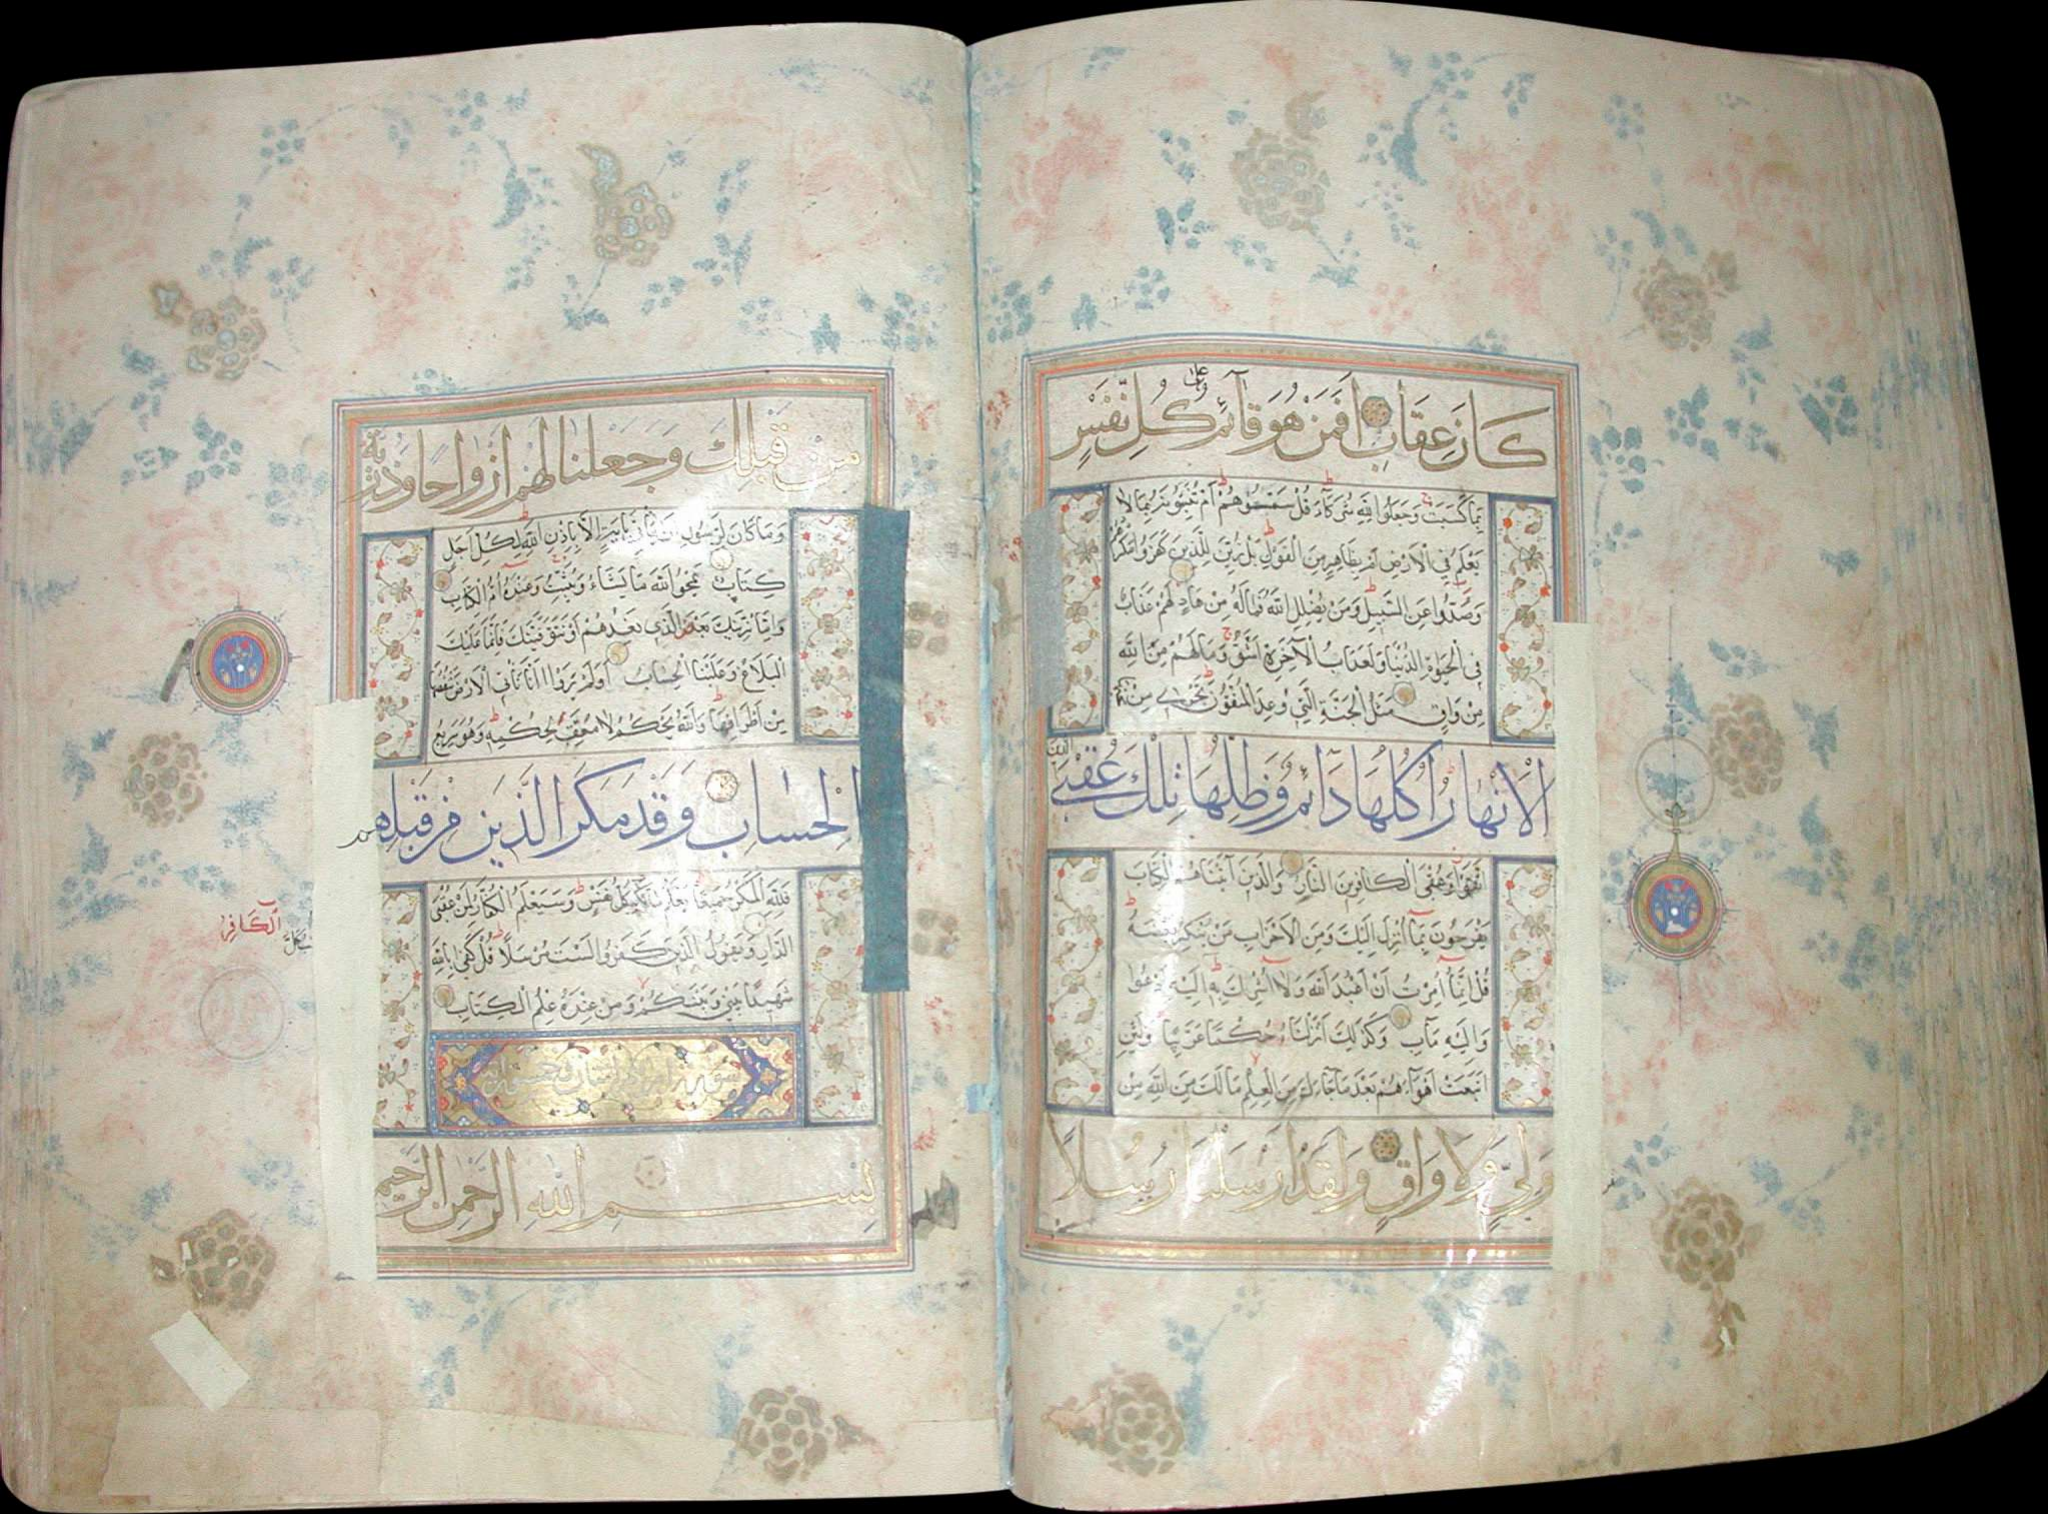 كَانَ عِقَابِ اَفَمَنْ هُوَ قَآئِمٌ عَلٰى كُلِّ نَفْسٍ
بِمَا كَسَبَتْ وَجَعَلُوا لِلّٰهِ شُرَكَآءَ قُلْ سَمُّوهُمْ اَمْ تُنَبِّؤُنَهُ بِمَا لَا
يَعْلَمُ فِي الْاَرْضِ اَمْ بِظَاهِرٍ مِنَ الْقَوْلِ بَلْ زُيِّنَ لِلَّذِينَ كَفَرُوا مَكْرُهُمْ
وَصُدُّوا عَنِ السَّبِيلِ وَمَنْ يُضْلِلِ اللّٰهُ فَمَا لَهُ مِنْ هَادٍ لَهُمْ عَذَابٌ
فِي الْحَيٰوةِ الدُّنْيَا وَلَعَذَابُ الْآخِرَةِ اَشَقُّ وَمَا لَهُمْ مِنَ اللّٰهِ
مِنْ وَاقٍ مَثَلُ الْجَنَّةِ الَّتِي وُعِدَ الْمُتَّقُونَ تَجْرِي مِنْ تَحْتِهَا
الْاَنْهَارُ اُكُلُهَا دَآئِمٌ وَظِلُّهَا تِلْكَ عُقْبَى الَّذِينَ
اتَّقَوْا وَعُقْبَى الْكَافِرِينَ النَّارُ وَالَّذِينَ آتَيْنَاهُمُ الْكِتَابَ
يَفْرَحُونَ بِمَا اُنْزِلَ اِلَيْكَ وَمِنَ الْاَحْزَابِ مَنْ يُنْكِرُ بَعْضَهُ
قُلْ اِنَّمَا اُمِرْتُ اَنْ اَعْبُدَ اللّٰهَ وَلَا اُشْرِكَ بِهِ اِلَيْهِ اَدْعُوا
وَاِلَيْهِ مَآبِ وَكَذٰلِكَ اَنْزَلْنَاهُ حُكْمًا عَرَبِيًّا وَلَئِنِ
اتَّبَعْتَ اَهْوَآءَهُمْ بَعْدَ مَا جَآءَكَ مِنَ الْعِلْمِ مَا لَكَ مِنَ اللّٰهِ مِنْ
وَلِيٍّ وَلَا وَاقٍ وَلَقَدْ اَرْسَلْنَا رُسُلًا
مِنْ قَبْلِكَ وَجَعَلْنَا لَهُمْ اَزْوَاجًا وَذُرِّيَّةً
وَمَا كَانَ لِرَسُولٍ اَنْ يَاْتِيَ بِآيَةٍ اِلَّا بِاِذْنِ اللّٰهِ لِكُلِّ اَجَلٍ
كِتَابٌ يَمْحُوا اللّٰهُ مَا يَشَآءُ وَيُثْبِتُ وَعِنْدَهُ اُمُّ الْكِتَابِ
وَاِمَّا نُرِيَنَّكَ بَعْضَ الَّذِي نَعِدُهُمْ اَوْ نَتَوَفَّيَنَّكَ فَاِنَّمَا عَلَيْكَ
الْبَلَاغُ وَعَلَيْنَا الْحِسَابُ اَوَلَمْ يَرَوْا اَنَّا نَاْتِي الْاَرْضَ نَنْقُصُهَا
مِنْ اَطْرَافِهَا وَاللّٰهُ يَحْكُمُ لَا مُعَقِّبَ لِحُكْمِهِ وَهُوَ سَرِيعُ
الْحِسَابِ وَقَدْ مَكَرَ الَّذِينَ مِنْ قَبْلِهِمْ
فَلِلّٰهِ الْمَكْرُ جَمِيعًا يَعْلَمُ مَا تَكْسِبُ كُلُّ نَفْسٍ وَسَيَعْلَمُ الْكُفَّارُ لِمَنْ عُقْبَى
الدَّارِ وَيَقُولُ الَّذِينَ كَفَرُوا لَسْتَ مُرْسَلًا قُلْ كَفٰى بِاللّٰهِ
شَهِيدًا بَيْنِي وَبَيْنَكُمْ وَمَنْ عِنْدَهُ عِلْمُ الْكِتَابِ
سورة ابراهيم
بِسْمِ اللّٰهِ الرَّحْمٰنِ الرَّحِيمِ
الْكَافِر